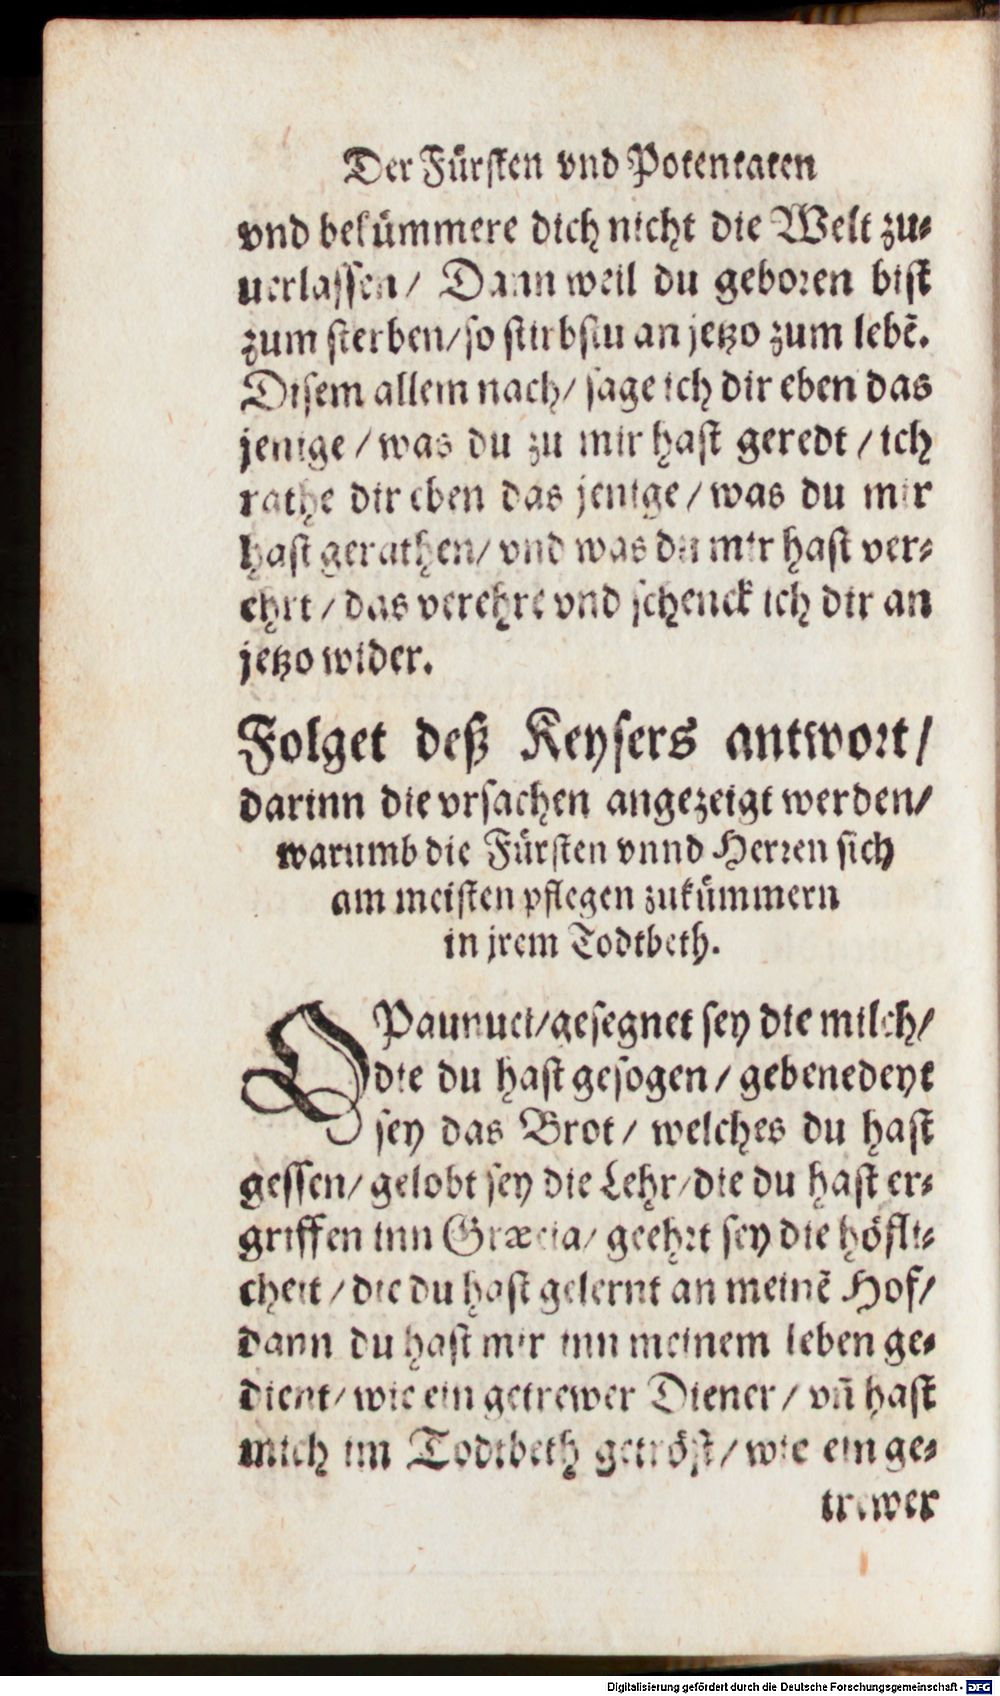 Der Fürsten vnd Potentaten
vnd bekümmere dich nicht die Welt zu⸗
uerlassen/ Dann weil du geboren bist
zum sterben/so stirbstu an jetzo zum lebẽ.
Disem allem nach/ sage ich dir eben das
jenige/was du zu mir hast geredt/ich
rathe dir eben das jenige/was du mir
hast gerathen/vnd was du mir hast ver⸗
ehrt/das verehre vnd schenck ich dir an
jetzo wider.
Folget deß Keysers antwort/
darinn die vrsachen angezeigt werden/
warumb die Fürsten vnnd Herren sich
am meisten pflegen zukümmern
in jrem Todtbeth.
O Paunuci/gesegnet sey die milch/
die du hast gesogen/gebenedeyt
sey das Brot/ welches du hast
gessen/gelobt sey die Lehr/die du hast er⸗
griffen inn Græcia/geehrt sey die höfli⸗
cheit/die du hast gelernt an meinẽ Hof/
dann du hast mir inn meinem leben ge⸗
dient/wie ein getrewer Diener/vñ hast
mich im Todtbeth getröst/wie ein ge⸗
trewer
Digitalisierung gefördert durch die Deutsche Forschungsgemeinschaft - DFG